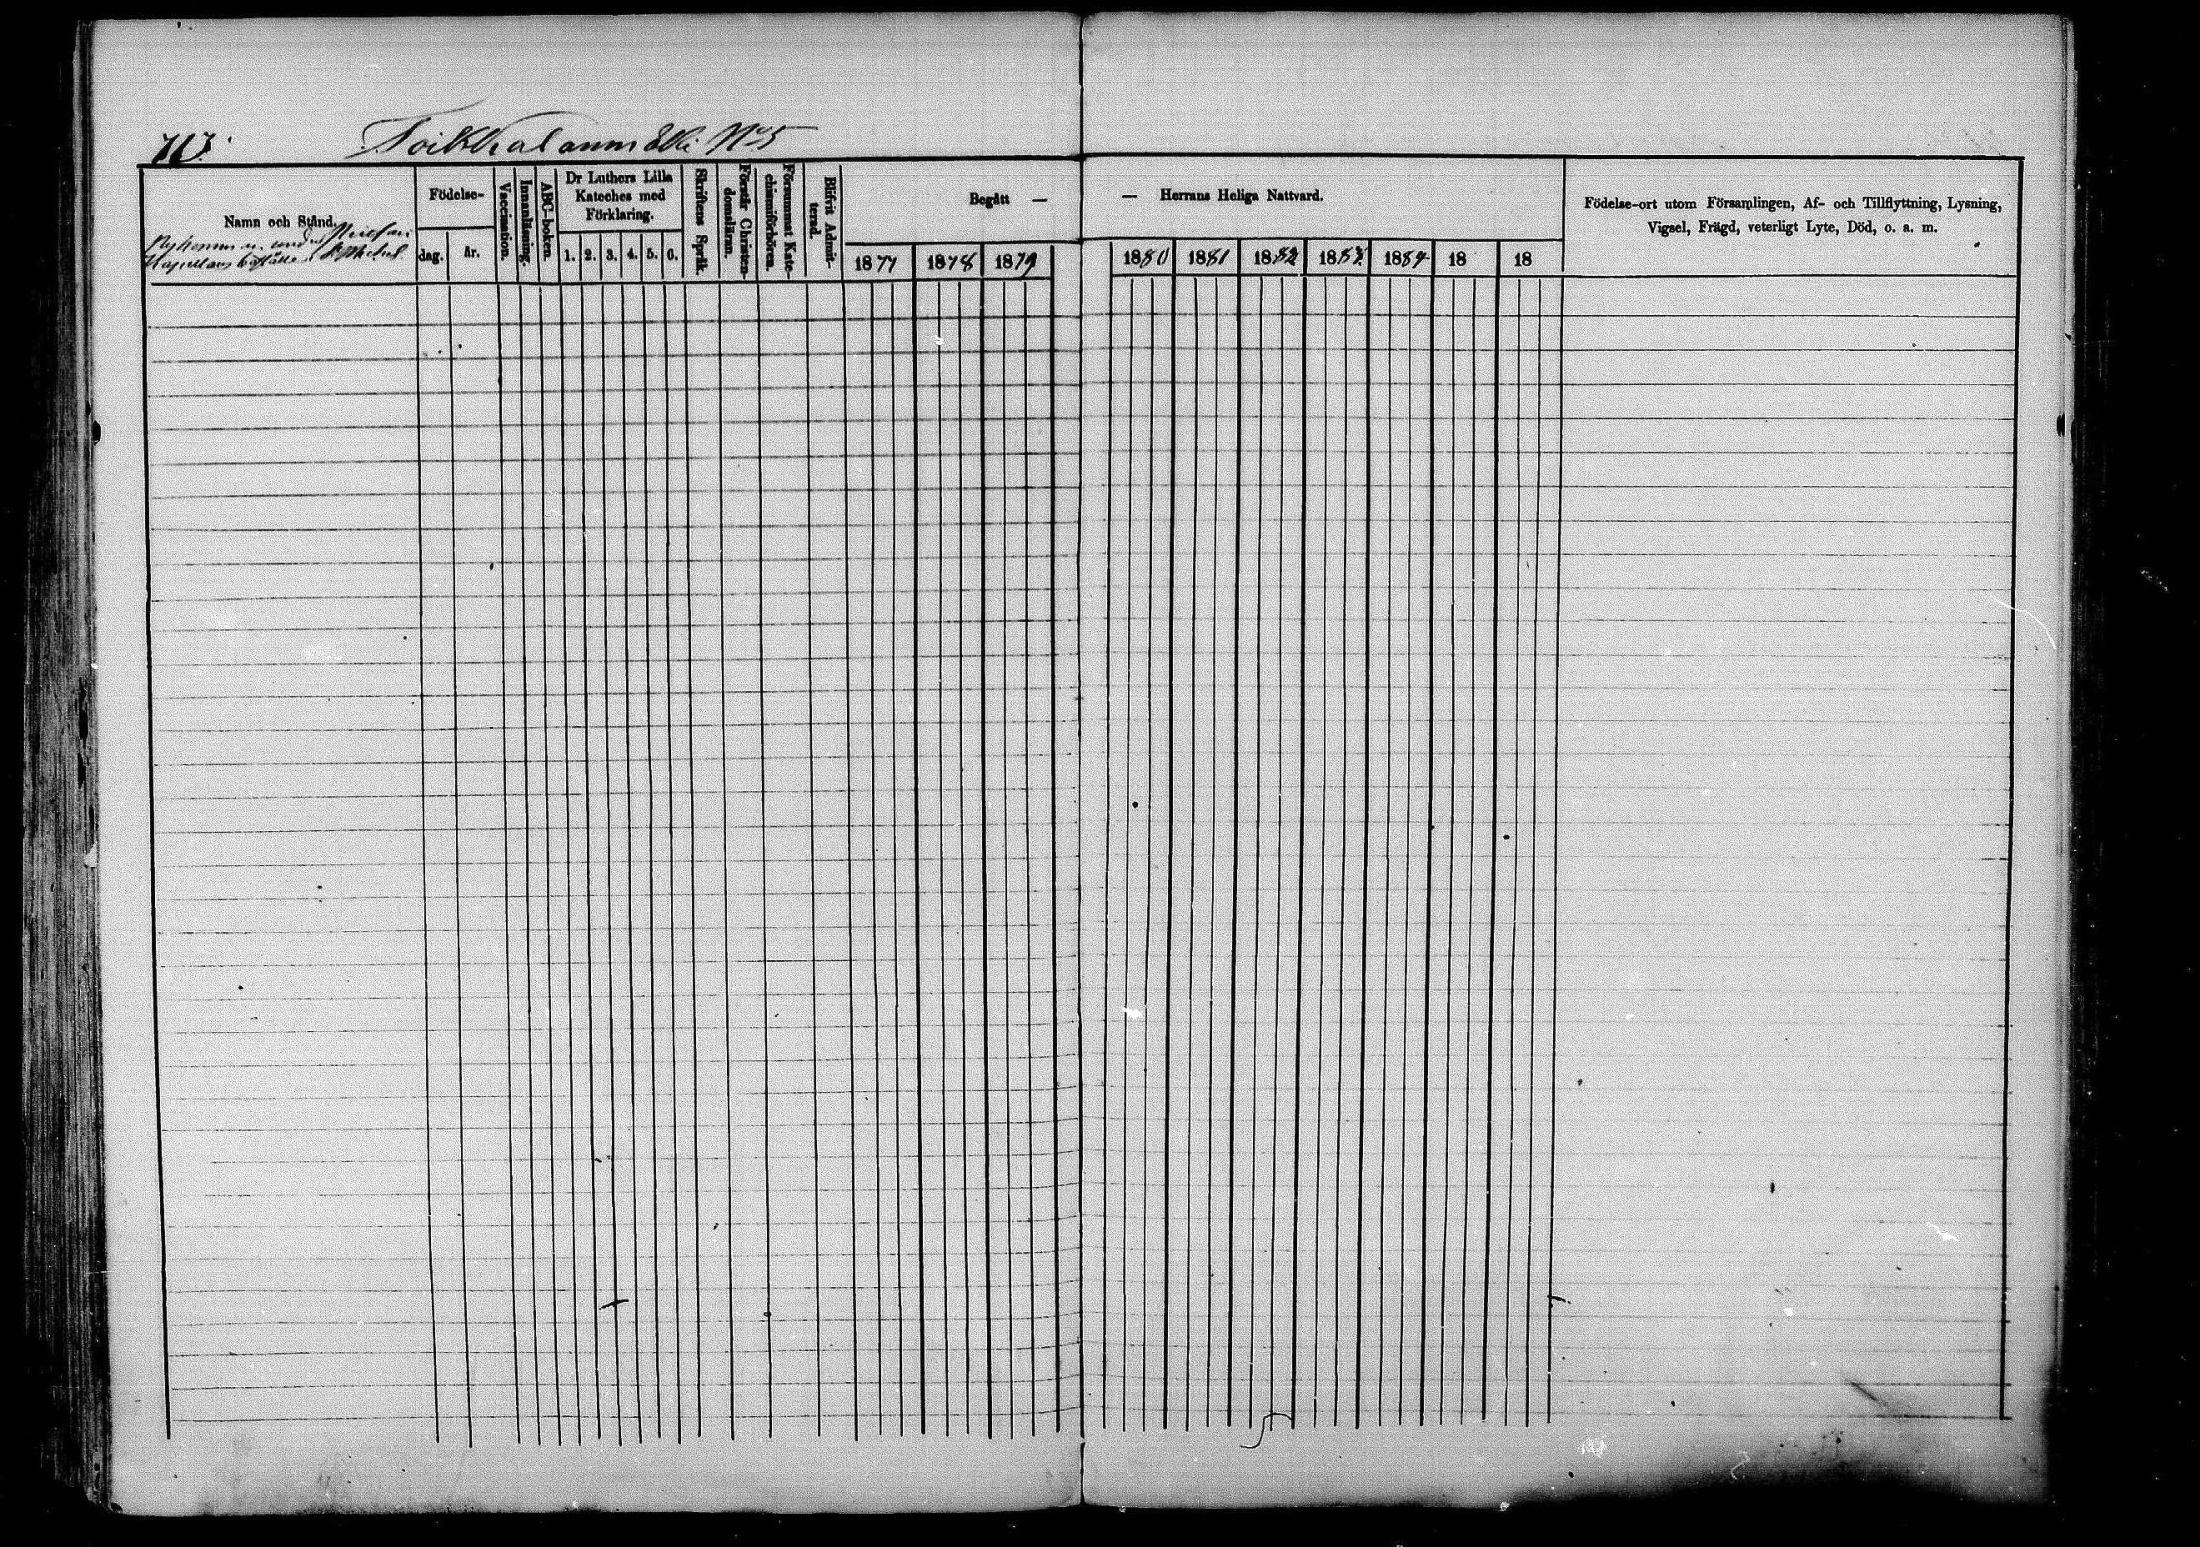 717.
Toikkalanmäki No 5
Namn och Stånd.
Födelse-
dag.
år.
Vaccination.
Innanläsning.
ABC-boken.
Dr Luthers Lilla
Kateches med
Förklaring.
1. 2. 3. 4. 5. 6.
Skriftens Språk.
Förstår Christen-
domsläran.
Försummat Kate-
chismiförhören.
Blifvit Admit-
terad.
Begått —
1877 1878 1879
— Herrans Heliga Nattvard.
1880 1881 1882 1883 1884 18 18
Födelse-ort utom Församlingen, Af- och Tillflyttning, Lysning,
Vigsel, Frägd, veterligt Lyte, Död, o. a. m.